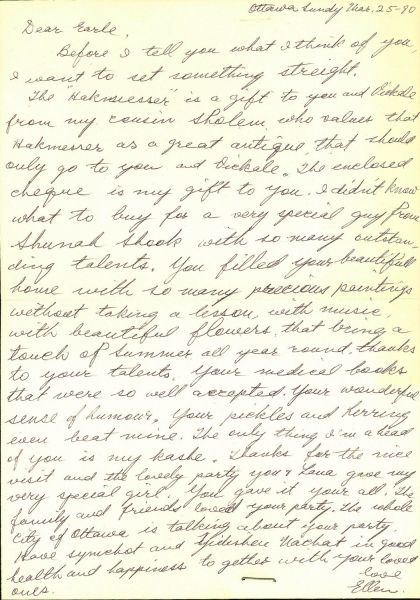 Ottawa Sundy Mar. 25-90
Dear Earle,
Before I tell you what I think of you,
I want to set something streight.
The "Hakmesser" is a gift to you and Vickale
from my cousin Sholem who values that
Hakmesser as a great antique that should
only go to you and Vickale. The enclosed
cheque is my gift to you. I didn't know
what to buy for a very special guy from
Shunah Shook with so many outstan-
ding talents. You filled your beautifull
home with so many precious paintings
without taking a lesson, with music,
with beautiful flowers, that bring a
touch of Summer all year round, thanks
to your talents. Your medical books
that were so well accepted. Your wonderful
sense of humour. Your pickles and herring
even beat mine. The only thing I'm ahead
of you is my kashe. Thanks for the nice
visit and the lovely party you & Lana gave my
very special girl. You gave it your all. The
family and friends loved your party. The whole
city of Ottawa is talking about your party.
Have symchot and Yidishen Nachat in good
health and happiness to gether with your loved
ones.
love
Ellen.